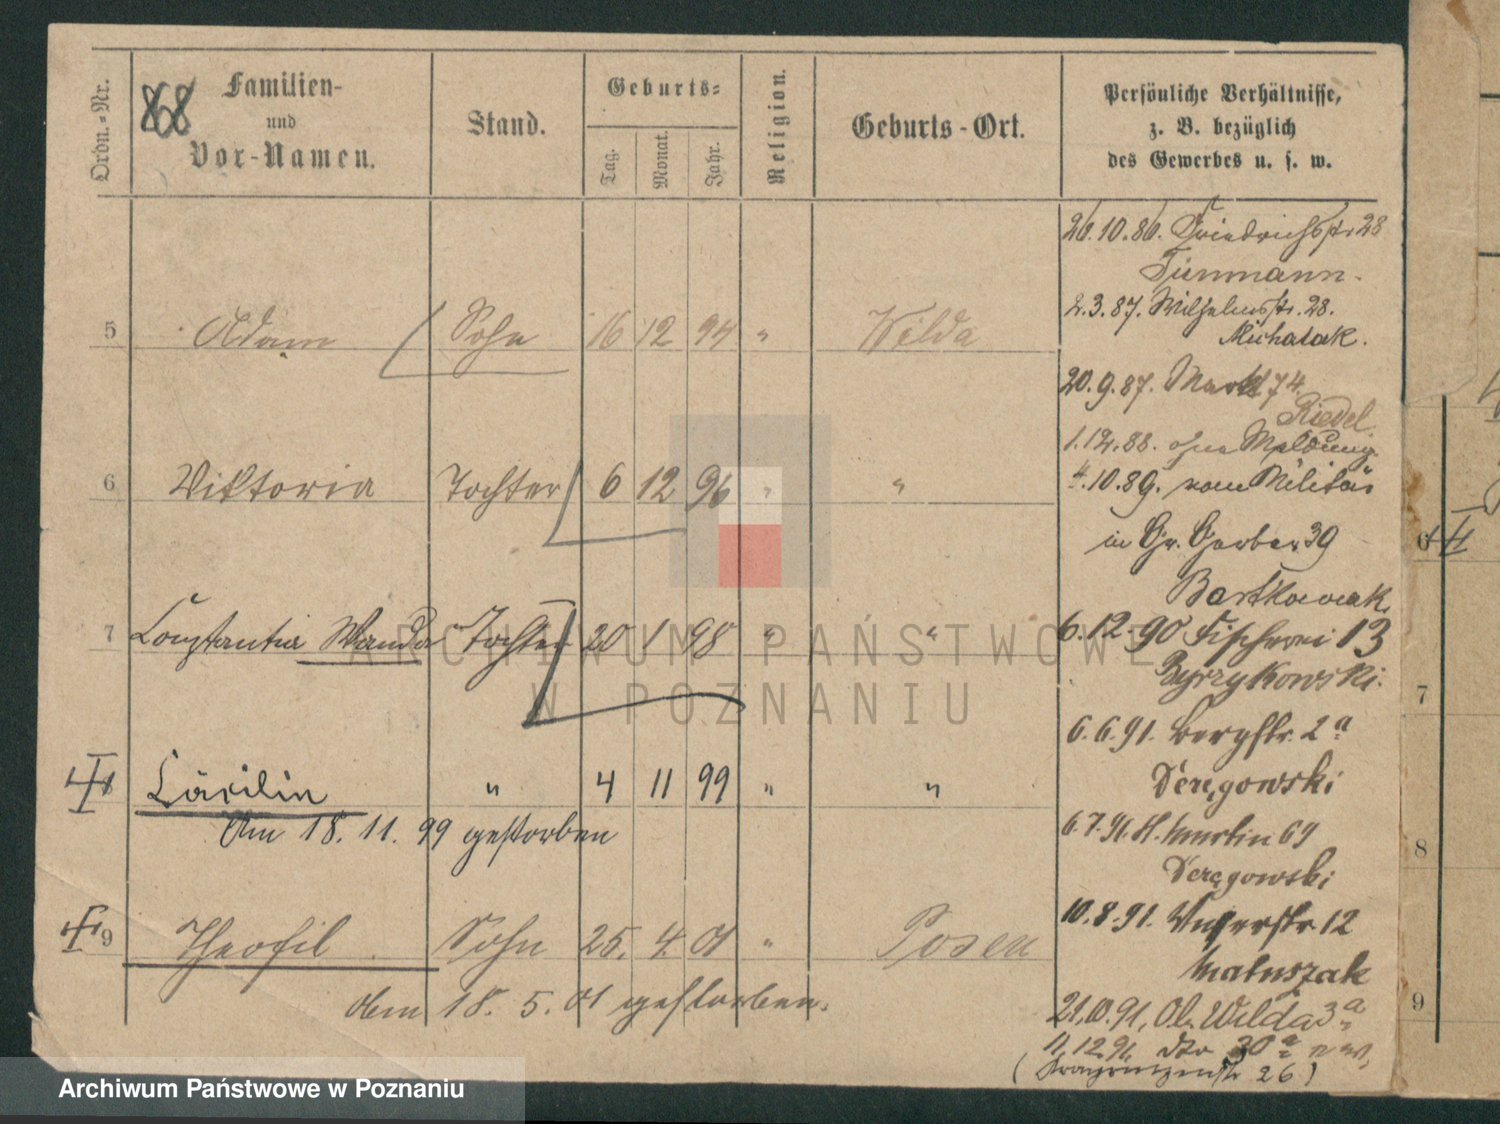 Ordn.-Nr.
868
Familien-
und
Vor-Namen.
Stand.
Geburts-
Tag.
Monat.
Jahr.
Religion.
Geburts-Ort.
Persönliche Verhältnisse,
z. B. bezüglich
des Gewerbes u. s. w.
5 Adam Sohn 16 12 94 " Wilda
6 Viktoria Tochter 6 12 96 " "
7 Constantia Wanda Tochter 20 1 98 " "
8 Cäcilia " 4 11 99 " "
Am 18. 11. 99 gestorben
9 Theofil Sohn 25. 4 01 " Posen
18. 5. 01 gestorben.
26.10.86. Friedrichstr 28
2.3.87. Wilhelmstr. 28.
Michalak.
20.9.87. Markt 74.
Riedel
1.12.88. ohne Meldung
4.10.89. vom Militär
in Gr. Gerber 39
Bartkowiak
6.12.90 Fischerei 13
Byrzykowski.
6.6.91. Bergstr. 2a
Deręgowski
6.7.91. St. Martin 69
Deręgowski
10.8.91. 12
Matuszak
21.10.91, Ob. Wilda 3a
11.12.91. dto 30a
26)
6
7
8
9
ARCHIWUM PAŃSTWOWE
W POZNANIU
Archiwum Państwowe w Poznaniu